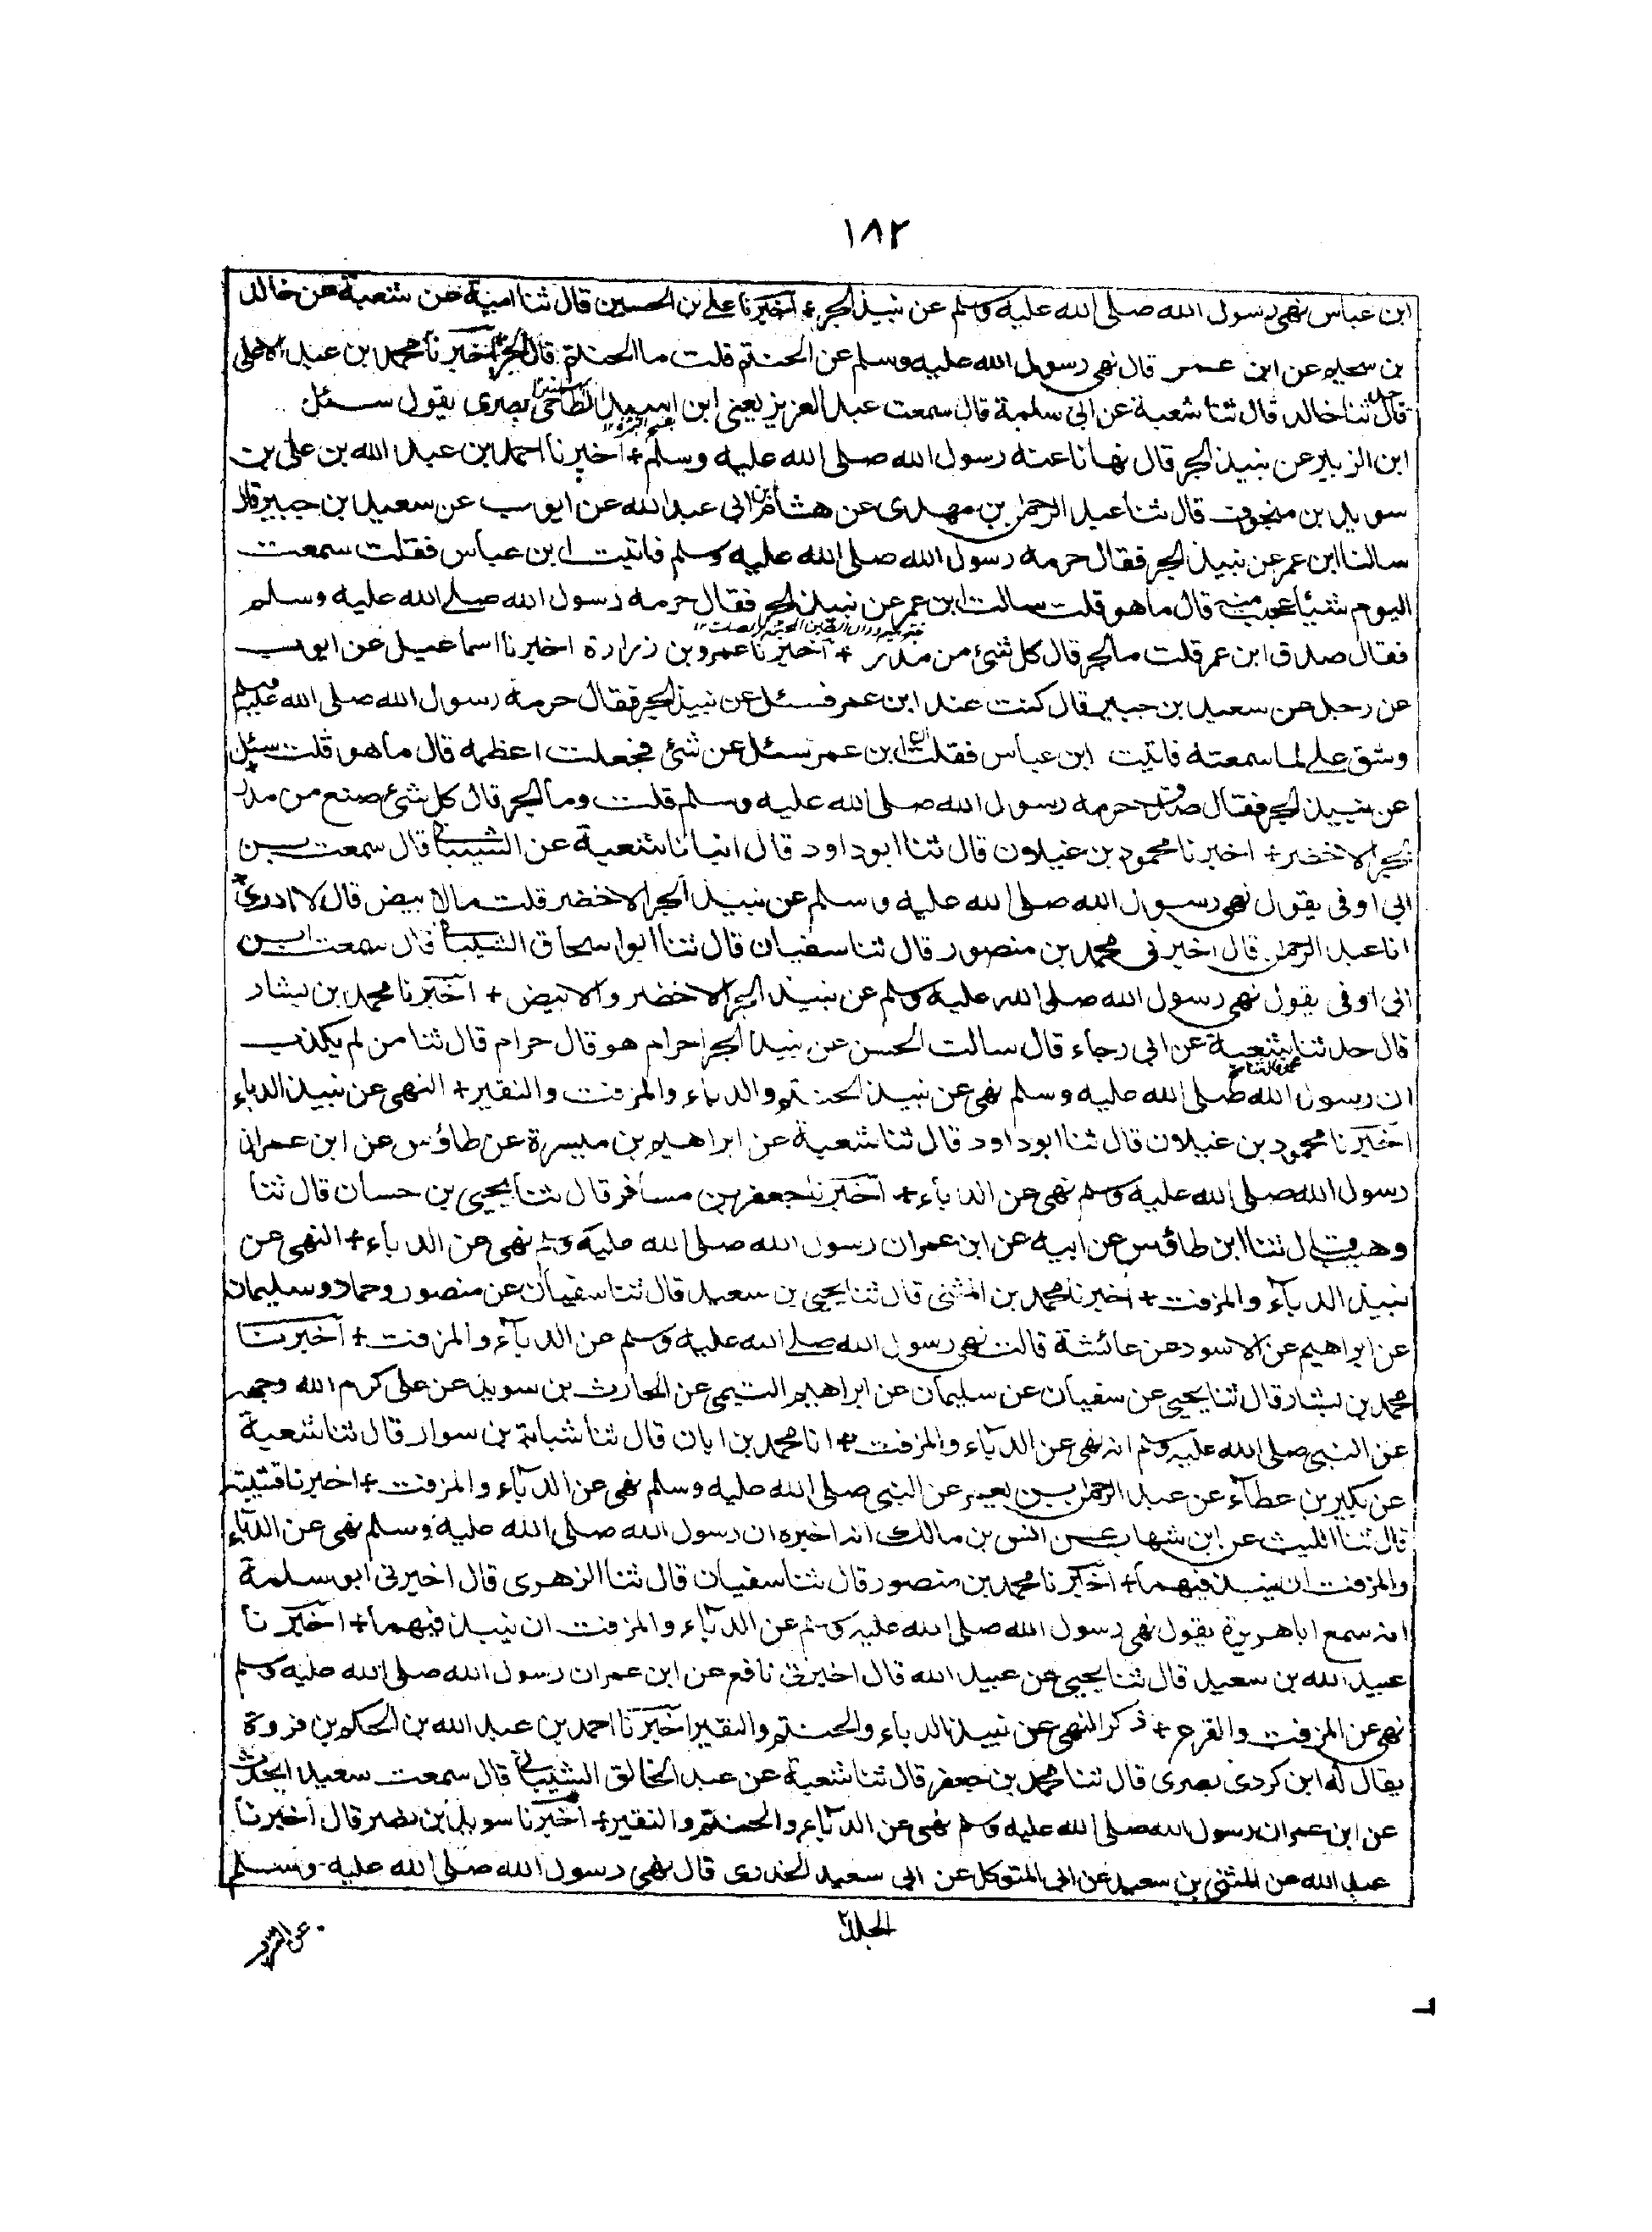 ١٨٢
ابن عباس نهى رسول الله صلى الله عليه وسلم عن نبيذ الجر + اخبرنا علي بن الحسين قال ثنا امية عن شعبة عن خالد
بن سحيم عن ابن عمر قال نهى رسول الله عليه وسلم عن الحنتم قلت ما الحنتم قال الجر اخبرنا محمد بن عبد الاعلى
قال ثنا خالد قال ثنا شعبة عن ابي سلمة قال سمعت عبد العزيز يعني ابن اسيد الطاحي بصرى يقول سئل
ابن الزبير عن نبيذ الجر قال نهانا عنه رسول الله صلى الله عليه وسلم + اخبرنا احمد بن عبد الله بن علي بن
سويد بن منجوف قال ثنا عبد الرحمن بن مهدى عن هشام بن ابي عبد الله عن ايوب عن سعيد بن جبير قال
سالنا ابن عمر عن نبيذ الجر فقال حرمه رسول الله صلى الله عليه وسلم فاتيت ابن عباس فقلت سمعت
اليوم شيئا عجبت منه قال ما هو قلت سالت ابن عمر عن نبيذ الجر فقال حرمه رسول الله صلى الله عليه وسلم
فقال صدق ابن عمر قلت ما الجر قال كل شئ من مدر + اخبرنا عمرو بن زرارة اخبرنا اسماعيل عن ايوب
عن رجل عن سعيد بن جبير قال كنت عند ابن عمر فسئل عن نبيذ الجر فقال حرمه رسول الله صلى الله عليه وسلم
وشق علي لما سمعته فاتيت ابن عباس فقلت ان ابن عمر سئل عن شئ فجعلت اعظمه قال ما هو قلت سئل
عن نبيذ الجر فقال صدق حرمه رسول الله صلى الله عليه وسلم قلت وما الجر قال كل شئ صنع من مدر +
الجر الاخضر + اخبرنا محمود بن غيلان قال ثنا ابو داود قال انبانا شعبة عن الشيباني قال سمعت بن
ابي اوفى يقول نهى رسول الله صلى الله عليه وسلم عن نبيذ الجر الاخضر قلت مالابيض قال لا ادرى +
انا عبد الرحمن قال اخبرني محمد بن منصور قال ثنا سفيان قال ثنا ابو اسحاق الشيباني قال سمعت ابن
ابي اوفى يقول نهى رسول الله صلى الله عليه وسلم عن نبيذ الجر الاخضر والابيض + اخبرنا محمد بن بشار
قال حدثنا شعبة عن ابي رجاء قال سالت الحسن عن نبيذ الجر احرام هو قال حرام قال ثنا من لم يكذب
ان رسول الله صلى الله عليه وسلم نهى عن نبيذ الحنتم والدباء والمزفت والنقير + النهى عن نبيذ الدباء
اخبرنا محمود بن غيلان قال ثنا ابو داود قال ثنا شعبة عن ابراهيم بن ميسرة عن طاؤس عن ابن عمر ان
رسول الله صلى الله عليه وسلم نهى عن الدباء + اخبرنا جعفر بن مسافر قال ثنا يحيى بن حسان قال ثنا
وهيب قال ثنا ابن طاؤس عن ابيه عن ابن عمر ان رسول الله صلى الله عليه وسلم نهى عن الدباء + النهى عن
نبيذ الدباء والمزفت + اخبرنا محمد بن المثنى قال ثنا يحيى بن سعيد قال ثنا سفيان عن منصور وحماد وسليمان
عن ابراهيم عن الاسود عن عائشة قالت نهى رسول الله صلى الله عليه وسلم عن الدباء والمزفت + اخبرنا
محمد بن بشار قال ثنا يحيى عن سفيان عن سليمان عن ابراهيم التيمى عن الحارث بن سويد عن على كرم الله وجهه
عن النبى صلى الله عليه وسلم انه نهى عن الدباء والمزفت + انا محمد بن ابان قال ثنا شبابة بن سوار قال ثنا شعبة
عن بكير بن عطاء عن عبد الرحمن بن يعمر عن النبى صلى الله عليه وسلم نهى عن الدباء والمزفت + اخبرنا قتيبة
قال ثنا الليث عن ابن شهاب عن انس بن مالك انه اخبره ان رسول الله صلى الله عليه وسلم نهى عن الدباء
والمزفت ان ينبذ فيهما + اخبرنا محمد بن منصور قال ثنا سفيان قال ثنا الزهرى قال اخبرنى ابو سلمة
انه سمع ابا هريرة يقول نهى رسول الله صلى الله عليه وسلم عن الدباء والمزفت ان ينبذ فيهما + اخبرنا
عبيد الله بن سعيد قال ثنا يحيى عن عبيد الله قال اخبرنى نافع عن ابن عمر ان رسول الله صلى الله عليه وسلم
نهى عن المزفت والقرع + ذكر النهى عن نبيذ الدباء والحنتم والنقير اخبرنا احمد بن عبد الله بن الحكم بن فروة
يقال له ابن كردى بصرى قال ثنا محمد بن جعفر قال ثنا شعبة عن عبد الخالق الشيبانى قال سمعت سعيدا يحدث
عن ابن عمر ان رسول الله صلى الله عليه وسلم نهى عن الدباء والحنتم والنقير + اخبرنا سويد بن نصر قال اخبرنا
عبد الله عن المثنى بن سعيد عن ابى المتوكل عن ابى سعيد الخدرى قال نهى رسول الله صلى الله عليه وسلم
الجلد٢
عن الشرب